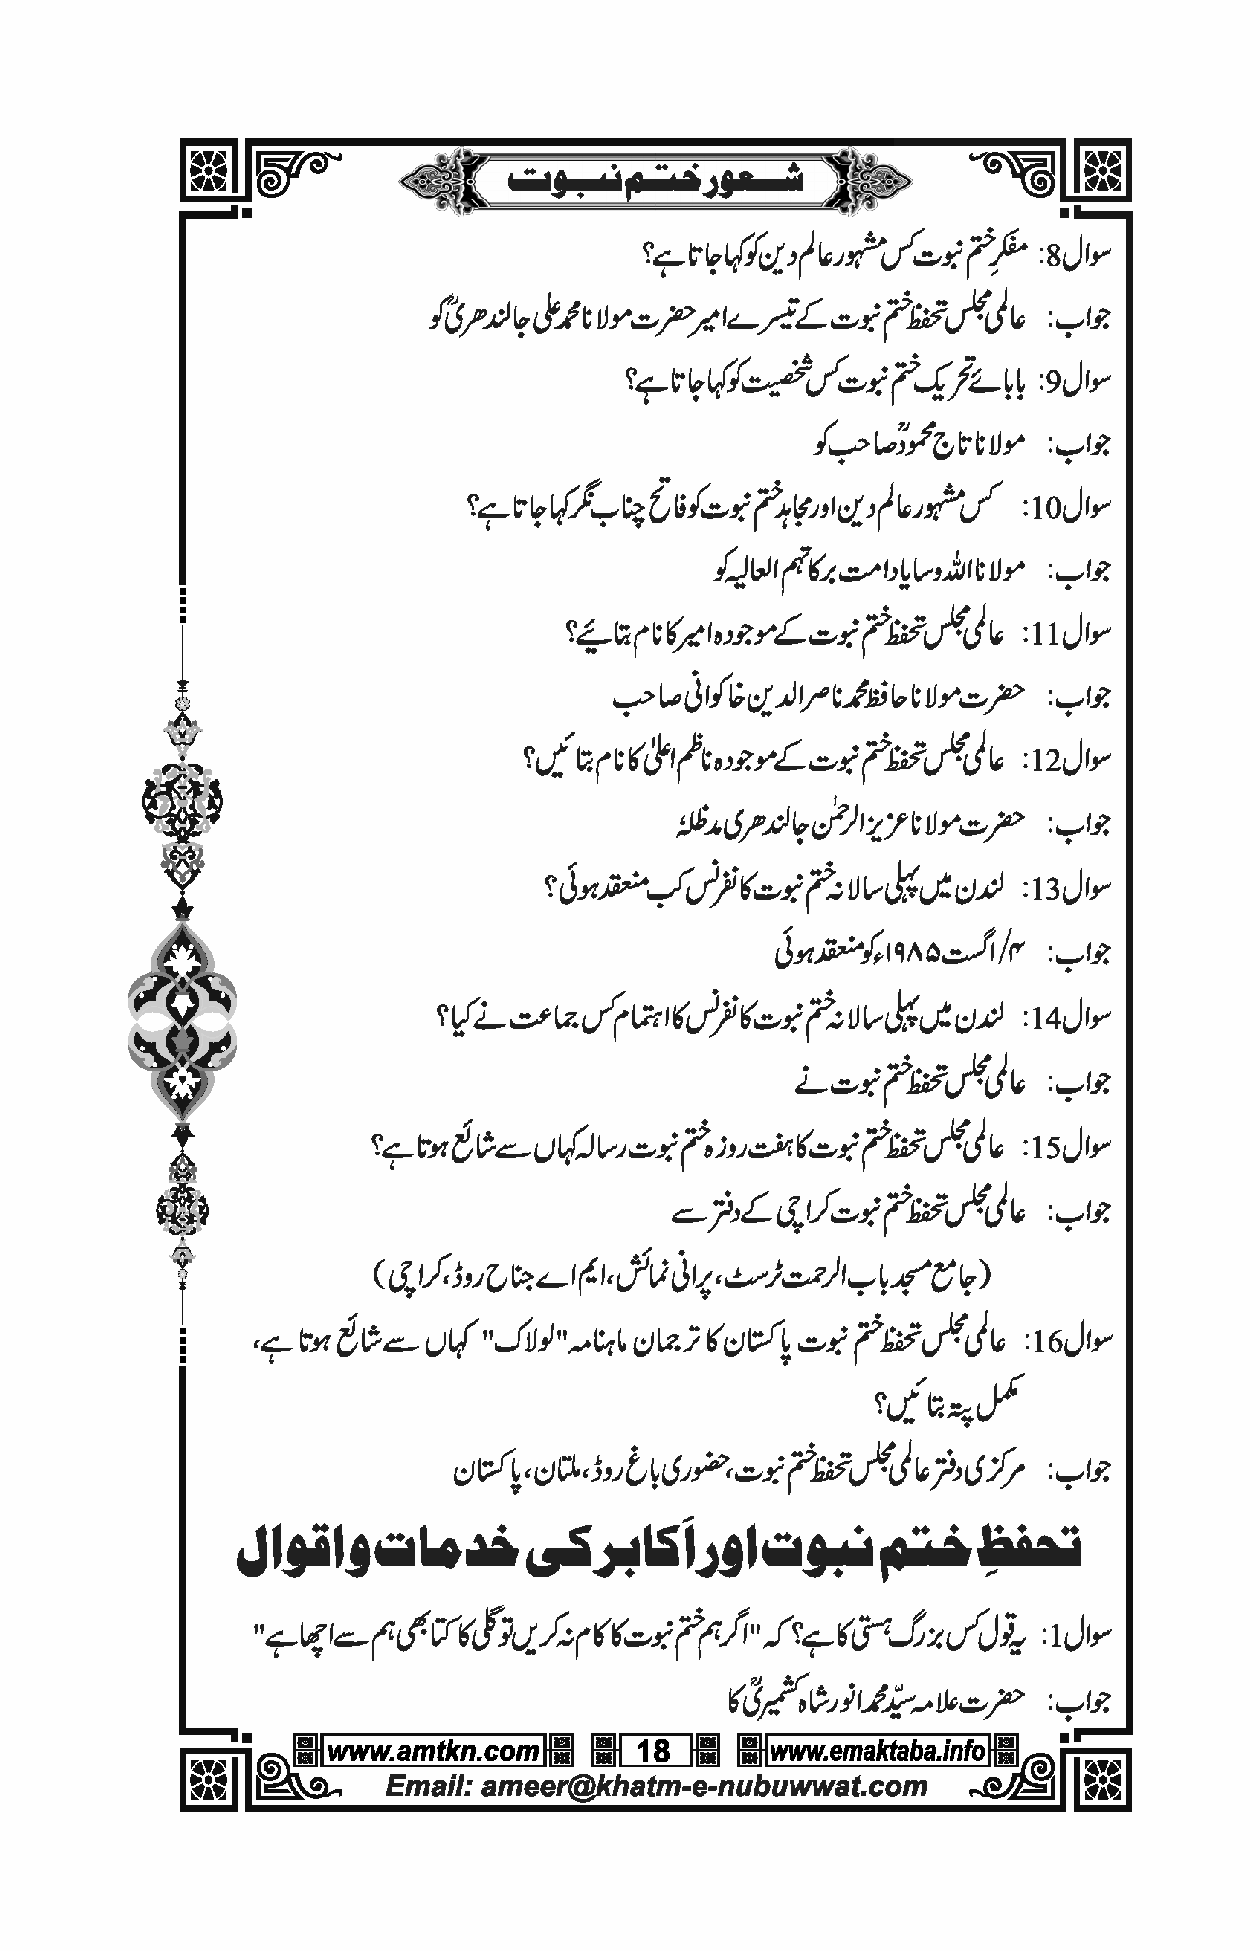 شعور ختم نبوت
سوال8: مفکرِ ختم نبوت کس مشہور عالم دین کو کہا جاتا ہے؟
جواب: عالمی مجلس تحفظ ختم نبوت کے تیسرے امیر حضرت مولانا محمد علی جالندھریؒ کو
سوال9: بابائے تحریک ختم نبوت کس شخصیت کو کہا جاتا ہے؟
جواب: مولانا تاج محمودؒ صاحب کو
سوال10: کس مشہور عالم دین اور مجاہد ختم نبوت کو فاتح چناب نگر کہا جاتا ہے؟
جواب: مولانا اللہ وسایا دامت برکاتہم العالیہ کو
سوال11: عالمی مجلس تحفظ ختم نبوت کے موجودہ امیر کا نام بتائیے؟
جواب: حضرت مولانا حافظ محمد ناصر الدین خاکوانی صاحب
سوال12: عالمی مجلس تحفظ ختم نبوت کے موجودہ ناظم اعلیٰ کا نام بتائیں؟
جواب: حضرت مولانا عزیز الرحمٰن جالندھری مدظلہٗ
سوال13: لندن میں پہلی سالانہ ختم نبوت کانفرنس کب منعقد ہوئی؟
جواب: ۴/اگست ۱۹۸۵ء کو منعقد ہوئی
سوال14: لندن میں پہلی سالانہ ختم نبوت کانفرنس کا اہتمام کس جماعت نے کیا؟
جواب: عالمی مجلس تحفظ ختم نبوت نے
سوال15: عالمی مجلس تحفظ ختم نبوت کا ہفت روزہ ختم نبوت رسالہ کہاں سے شائع ہوتا ہے؟
جواب: عالمی مجلس تحفظ ختم نبوت کراچی کے دفتر سے
(جامع مسجد باب الرحمت ٹرسٹ، پرانی نمائش، ایم اے جناح روڈ، کراچی)
سوال16: عالمی مجلس تحفظ ختم نبوت پاکستان کا ترجمان ماہنامہ "لولاک" کہاں سے شائع ہوتا ہے،
مکمل پتہ بتائیں؟
جواب: مرکزی دفتر عالمی مجلس تحفظ ختم نبوت، حضوری باغ روڈ، ملتان، پاکستان
تحفظِ ختم نبوت اور اَکابر کی خدمات و اقوال
سوال1: یہ قول کس بزرگ ہستی کا ہے؟ کہ "اگر ہم ختم نبوت کا کام نہ کریں تو گلی کا کتا بھی ہم سے اچھا ہے"
جواب: حضرت علامہ سیّد محمد انور شاہ کشمیریؒ کا
www.amtkn.com 18 www.emaktaba.info
Email: ameer@khatm-e-nubuwwat.com